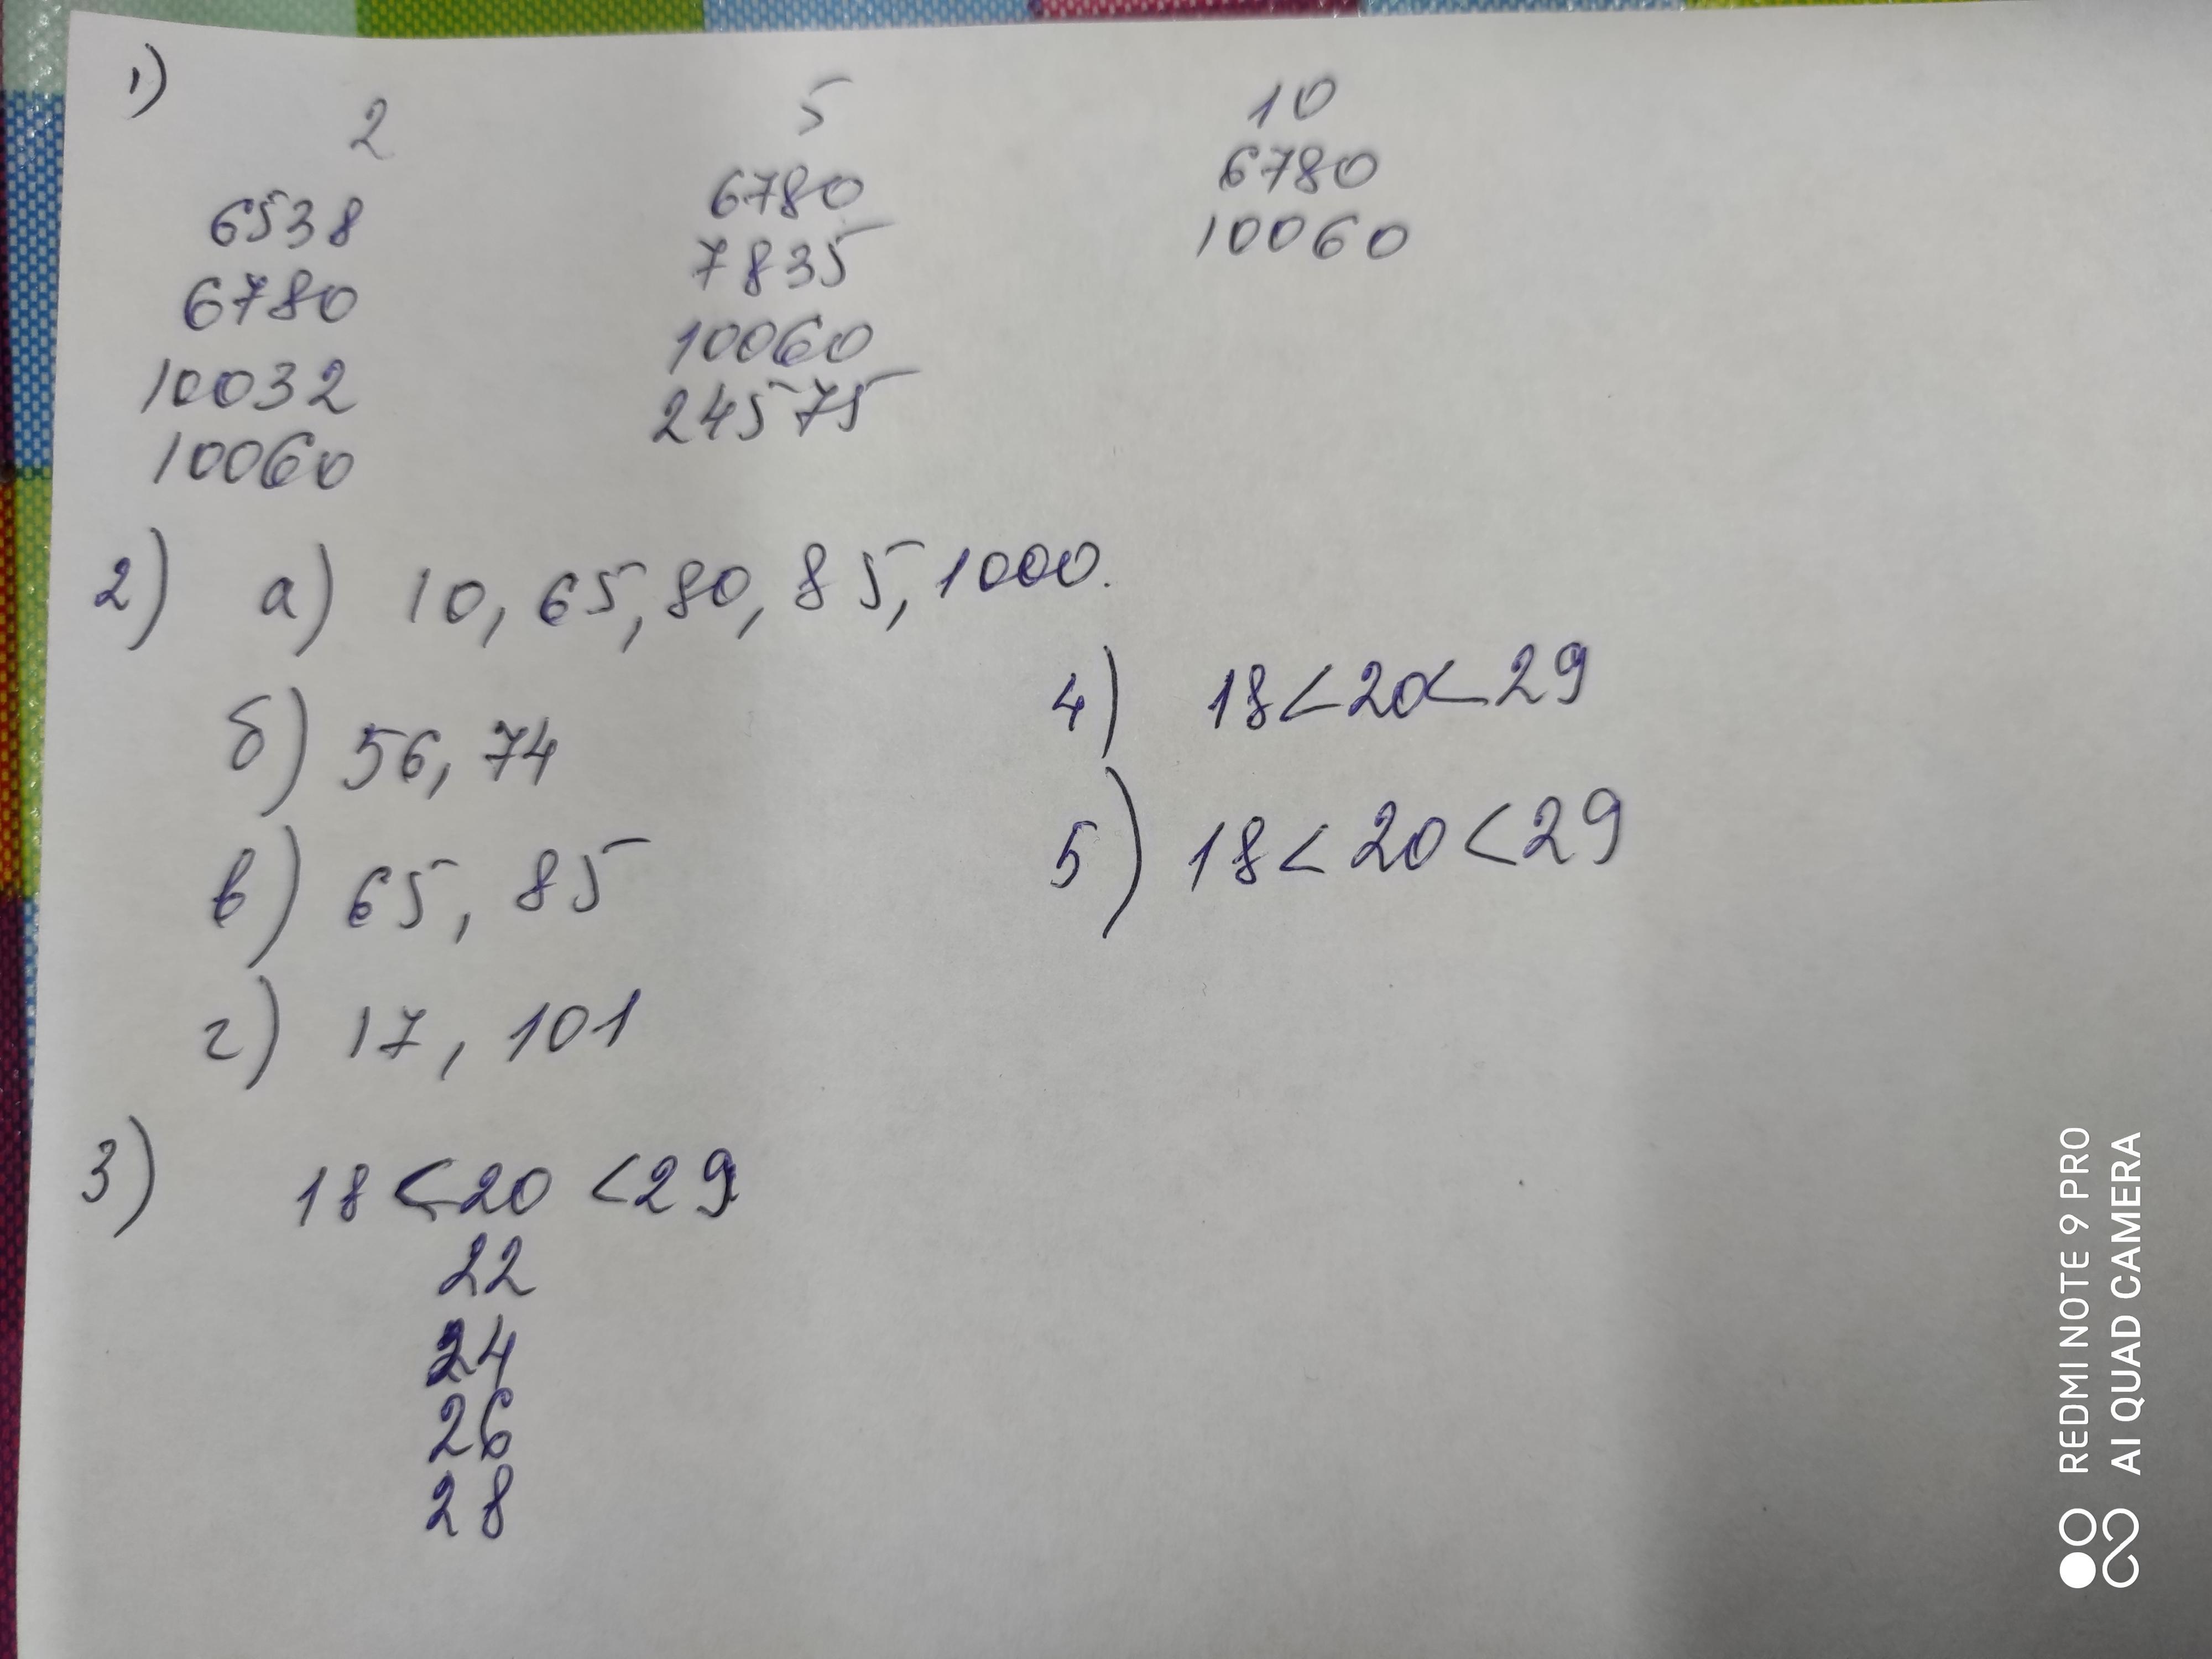 1)
2 5 10
6538 6780 6780
6780 7835 10060
10032 10060
10060 24575
2) а) 10, 65, 80, 85, 1000.
б) 56, 74
в) 65, 85
г) 17, 101
3) 18 < 20 < 29
22
24
26
28
4) 18 < 20 < 29
5) 18 < 20 < 29
REDMI NOTE 9 PRO
AI QUAD CAMERA